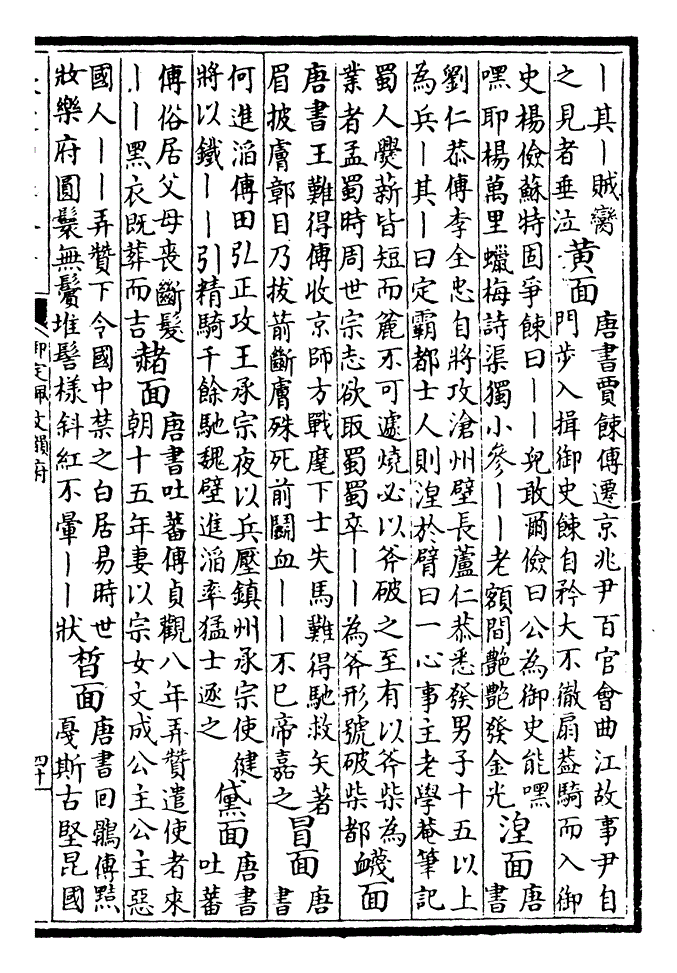 丨其丨賊臠
之見者垂泣
黄面
唐書賈餗傳遷京兆尹百官會曲江故事尹自
門步入揖御史餗自矜大不徹扇葢騎而入御
史楊儉蘇特固爭餗曰丨丨兒敢爾儉曰公為御史能嘿
嘿耶楊萬里蠟梅詩渠獨小參丨丨老額間艷艷發金光
湼面
唐
書
劉仁恭傳李全忠自將攻滄州壁長蘆仁恭悉發男子十五以上
為兵丨其丨曰定霸都士人則湼於臂曰一心事主老學菴筆記
蜀人爨薪皆短而麄不可遽燒必以斧破之至有以斧柴為
業者孟蜀時周世宗志欲取蜀蜀卒丨丨為斧形號破柴都
衊面
唐書王難得傳收京師方戰麾下士失馬難得馳救矢著
眉披膚鄣目乃拔箭斷膚殊死前鬬血丨丨不已帝嘉之
冒面
唐
書
何進滔傳田弘正攻王承宗夜以兵壓鎮州承宗使徤
將以鐵丨丨引精騎千餘馳魏壁進滔率猛士逐之
黛面
唐書
吐蕃
傳俗居父母喪斷髮
丨丨黑衣既葬而吉
赭面
唐書吐蕃傳貞觀八年弄贊遣使者來
朝十五年妻以宗女文成公主公主惡
國人丨丨弄贊下令國中禁之白居易時世
妝樂府圓鬟無鬢堆髻樣斜紅不暈丨丨狀
皙面
唐書回鶻傳黠
戛斯古堅昆國
御定佩文韻府
四十一